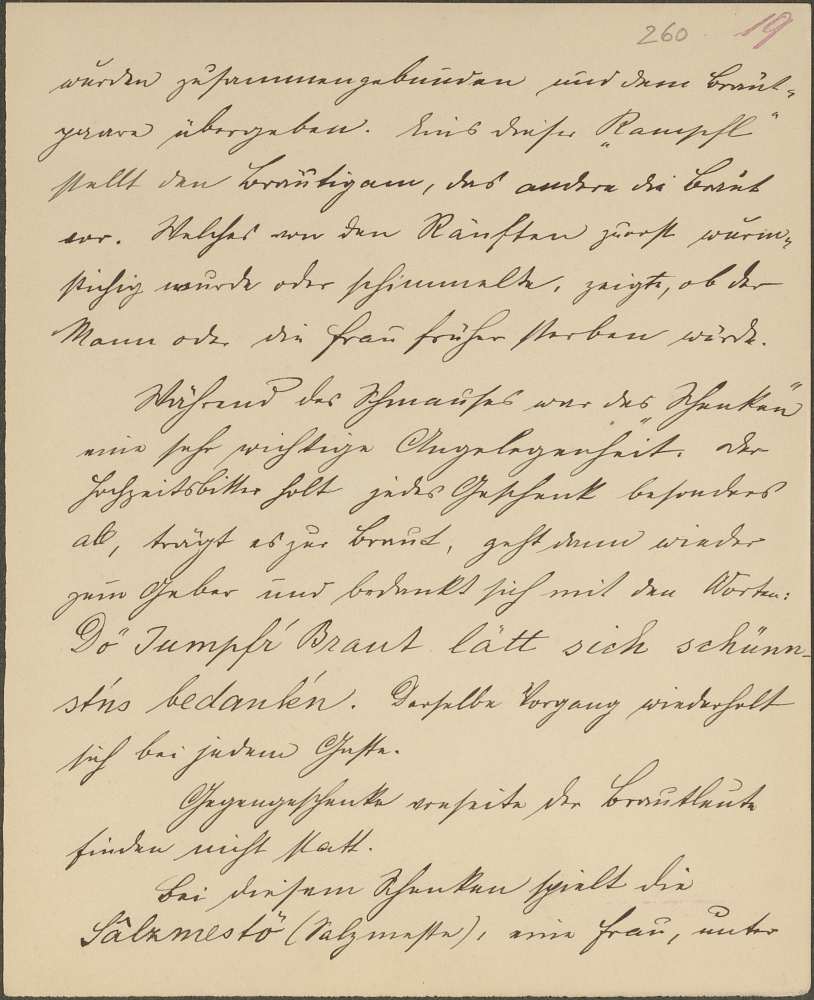 260 19
wurden zusammengebunden und dem Braut-
paare übergeben. Eins dieser „Rampfl"
stellt den Bräutigam, das andere die Braut
vor. Welches von den Ränften zuerst wurm-
stichig wurde oder schimmelte, zeigte, ob der
Mann oder die Frau früher sterben würde.
Während des Schmauses war das „Schenken"
eine sehr wichtige Angelegenheit. Der
Hochzeitsbitter holt jedes Geschenk besonders
ab, trägt es zur Braut, geht dann wieder
zum Geber und bedankt sich mit den Worten:
Dö Jumpfr' Braut lätt sich schünn-
st'ns bedank'n. Derselbe Vorgang wiederholt
sich bei jedem Gaste.
Gegengeschenke vonseite der Brautleute
finden nicht statt.
Bei diesem Schenken spielt die
Sâlzmestö (Salzmeste), eine Frau, unter